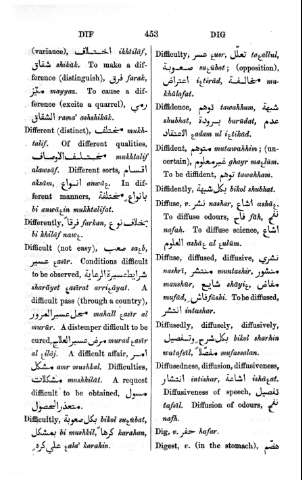 DIF 453 DIG
(variance), اختلاف ikhtiláf,
شقاق shikák. To make a dif-
ference (distinguish), فرق farak,
ميّز mayyaz. To cause a dif-
ference (excite a quarrel), رمى
الشقاق rama' ashshikák.
Different (distinct), مختلف mukh-
talif. Of different qualities,
مختلف الاوصاف mukhtalif
alawsáf. Different sorts, اقسام
aksám, انواع anwaع. In dif-
ferent manners, بانواع مختلفة
bi anwaعin mukhtalifat.
Differently, فرقا farkan, بخلاف نوع
bi khiláf nawع.
Difficult (not easy), صعب saعb,
عسير عasír. Conditions difficult
to be observed, شرايط عسيرة الرعاية
sharáyat عasírat arriعáyat. A
difficult pass (through a country),
محل عسير المرور mahall عasír al
murúr. A distemper difficult to be
cured, مرض عسير العلاج marad عasír
al عiláj. A difficult affair, امر
مشكل amr mushkil. Difficulties,
مشكلات mushkilát. A request
difficult to be obtained, مسول
متعذر الحصول
Difficultly, بكل صعوبة bikol suعúbat,
بمشكل bi mushkil, كرها karahan,
على كره عala' karahin.
Difficulty, عسر عusr, تعلل taعallul,
صعوبة suعúbat; (opposition),
اعتراض iعtirád, مخالفة mu-
khálafat.
Diffidence, توهم tawahhum, شبهة
shubhat, برودة burúdat, عدم
الاعتقاد عadam ul iعtikád.
Diffident, متوهم mutawahhim; (un-
certain), غير معلوم ghayr maعlúm.
To be diffident, توهم tawahham.
Diffidently, بكل شبهة bikol shubhat.
Diffuse, v. نشر nashar, اشاع asháع.
To diffuse odours, فاح fáh, نفح
nafah. To diffuse science, اشاع
العلوم asháع al عulúm.
Diffuse, diffused, diffusive, نشرى
nashrí, منتشر muntashir, منشور
manshúr, شايع sháyiع, مفاض
mufád, فاشى fáshi. To be diffused,
انتشر intashar.
Diffusedly, diffusely, diffusively,
بكل شرح وتفصيل bikol sharhin
watafsíl, مفصلا mufassalan.
Diffusedness, diffusion, diffusiveness,
انتشار intishar, اشاعة isháعat.
Diffusiveness of speech, تفصيل
tafsíl. Diffusion of odours, نفح
nafh.
Dig, v. حفر hafar.
Digest, v. (in the stomach), هضم,